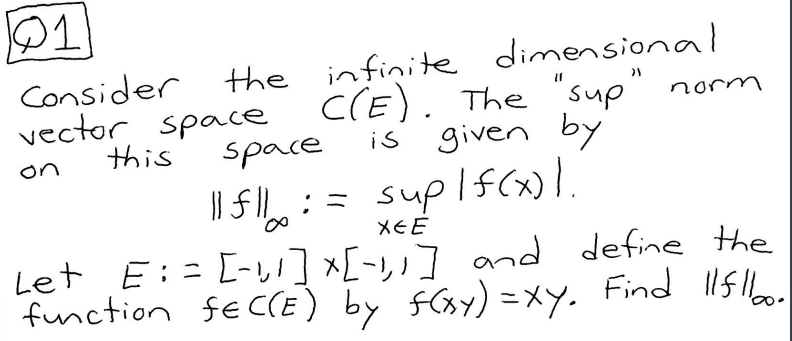 Q1
Consider the infinite dimensional
vector space C(E). The "sup" norm
on this space is given by
||f||∞ := sup |f(x)|.
x∈E
Let E := [-1,1] x [-1,1] and define the
function f∈C(E) by f(xy) = xy. Find ||f||∞.